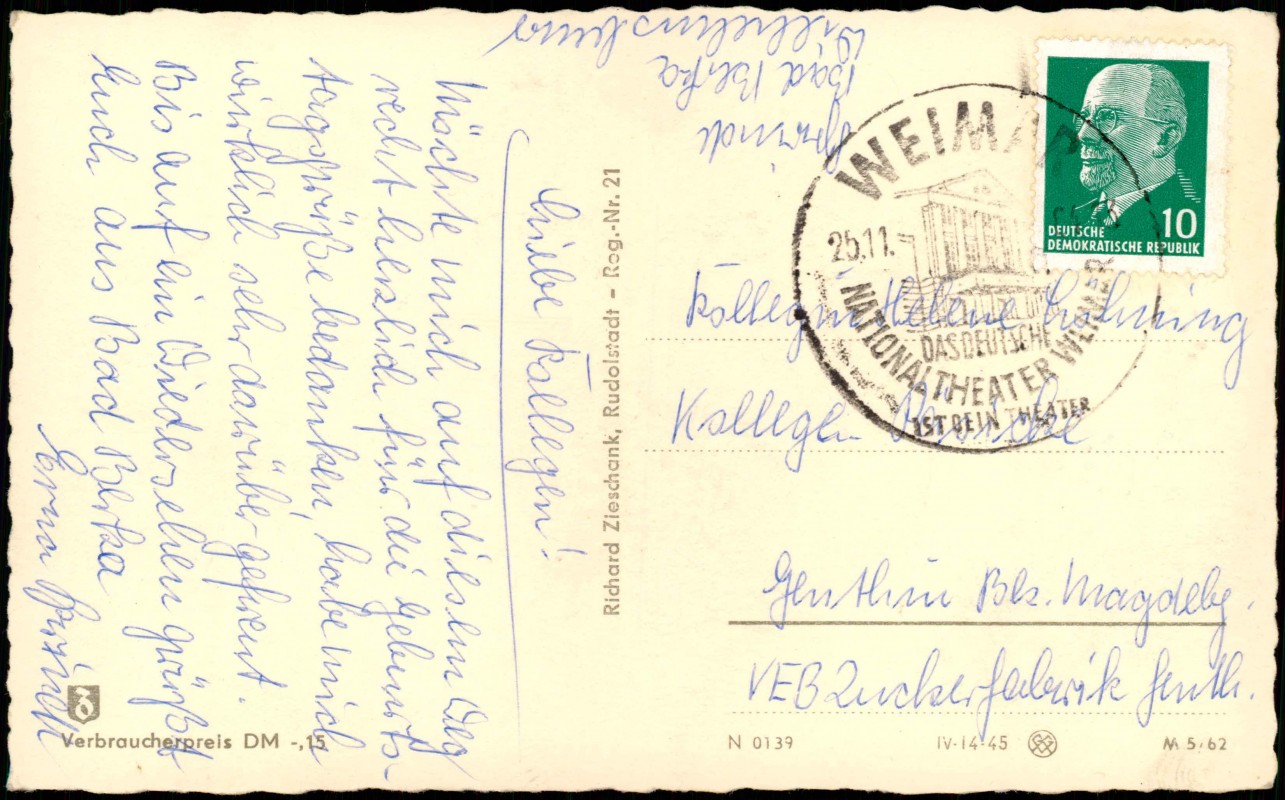 Liebe Kollegen!
Möchte mich auf diesem Weg
recht herzlich für die Geburts-
tagsgrüße bedanken, habe mich
wirklich sehr darüber gefreut.
Bis auf ein Wiedersehen grüßt
Euch aus Bad Berka
Erna
Verbraucherpreis DM -,15
Richard Zieschank, Rudolstadt – Rog.-Nr. 21
Bad Berka
WEIMAR
25.11.
DAS DEUTSCHE
NATIONALTHEATER WEIMAR
IST DEIN THEATER
10
DEUTSCHE
DEMOKRATISCHE REPUBLIK
Kollegin Helene
Kollegen
Genthin Bez. Magdebg.
VEB Zuckerfabrik Genth.
N 0139 IV-14-45 M 5/62